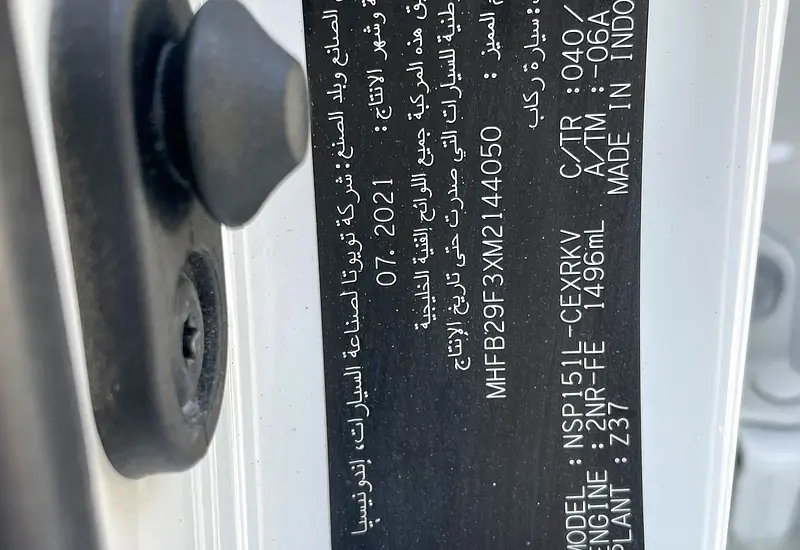 الصانع وبلد الصنع: شركة تويوتا لصناعة السيارات، إندونيسيا
وشهر الانتاج: 07. 2021
هذه المركبة جميع اللوائح الفنية الخليجية
للسيارات التي صدرت حتى تاريخ الإنتاج
المميز : MHFB29F3XM2144050
: سيارة ركاب
MODEL : NSP151L-CEXRKV C/TR : 040/
ENGINE : 2NR-FE 1496mL A/TM : -06A
PLANT : Z37 MADE IN INDO